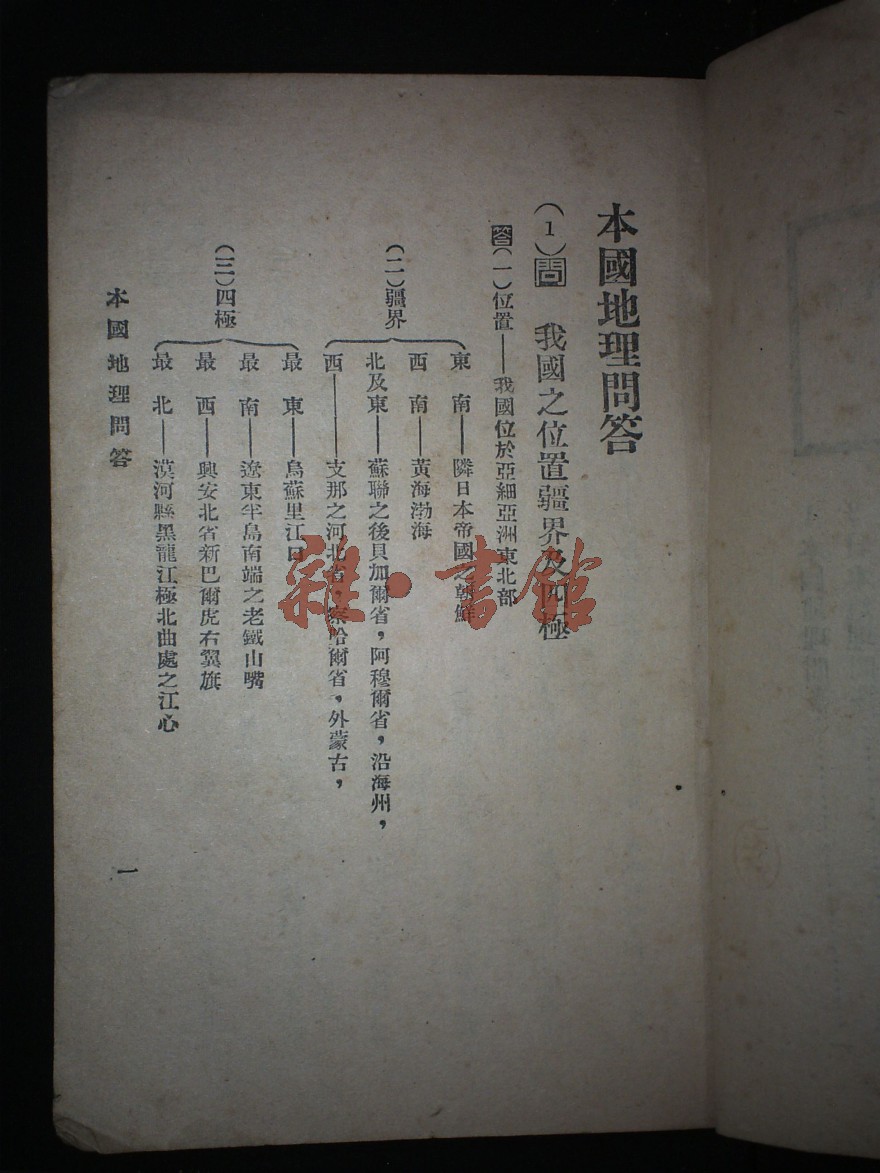 本國地理問答
(1)問 我國之位置疆界及四極
答(一)位置——我國位於亞細亞洲東北部
(二)疆界
東南——隣日本帝國之朝鮮
西南——黃海渤海
北及東——蘇聯之後貝加爾省，阿穆爾省，沿海州，
西——支那之河北省，察哈爾省，外蒙古，
(三)四極
最東——烏蘇里江口
最南——遼東半島南端之老鐵山嘴
最西——興安北省新巴爾虎右翼旗
最北——漠河縣黑龍江極北曲處之江心
本國地理問答
一
雜·書館